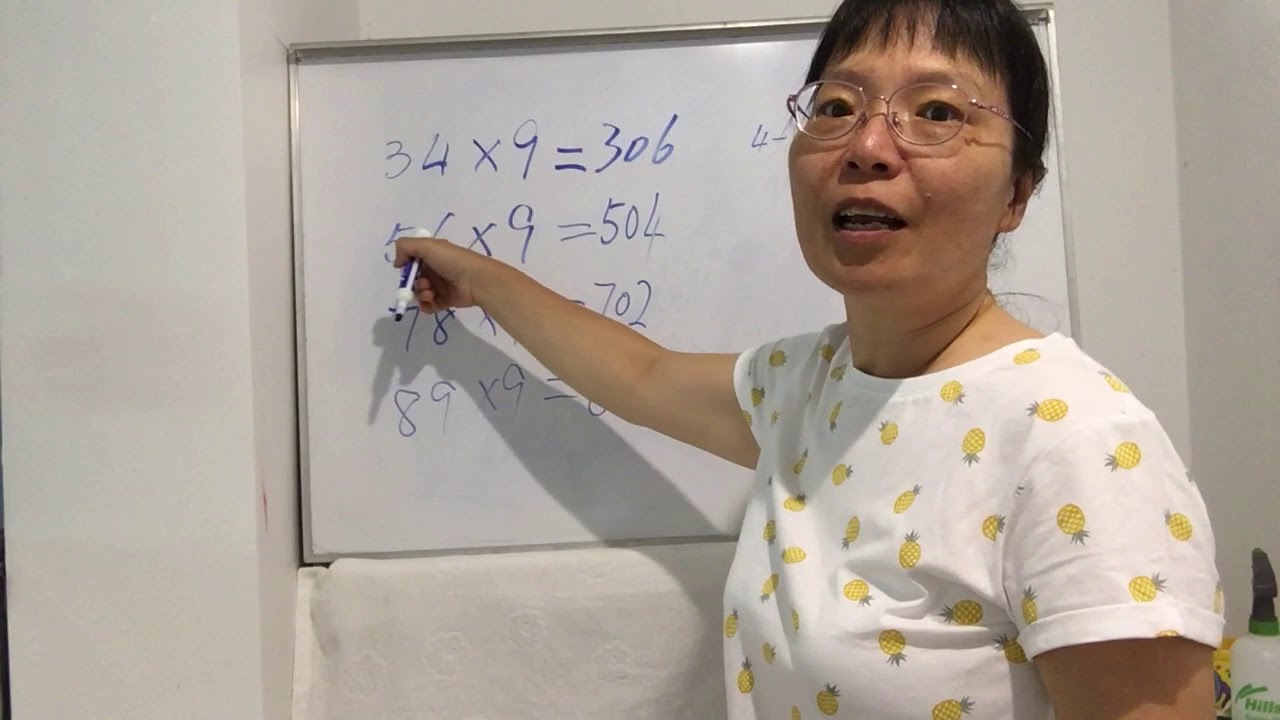 34 × 9 = 306
4-
56 × 9 = 504
78 × = 702
89 × 9 =
Hills